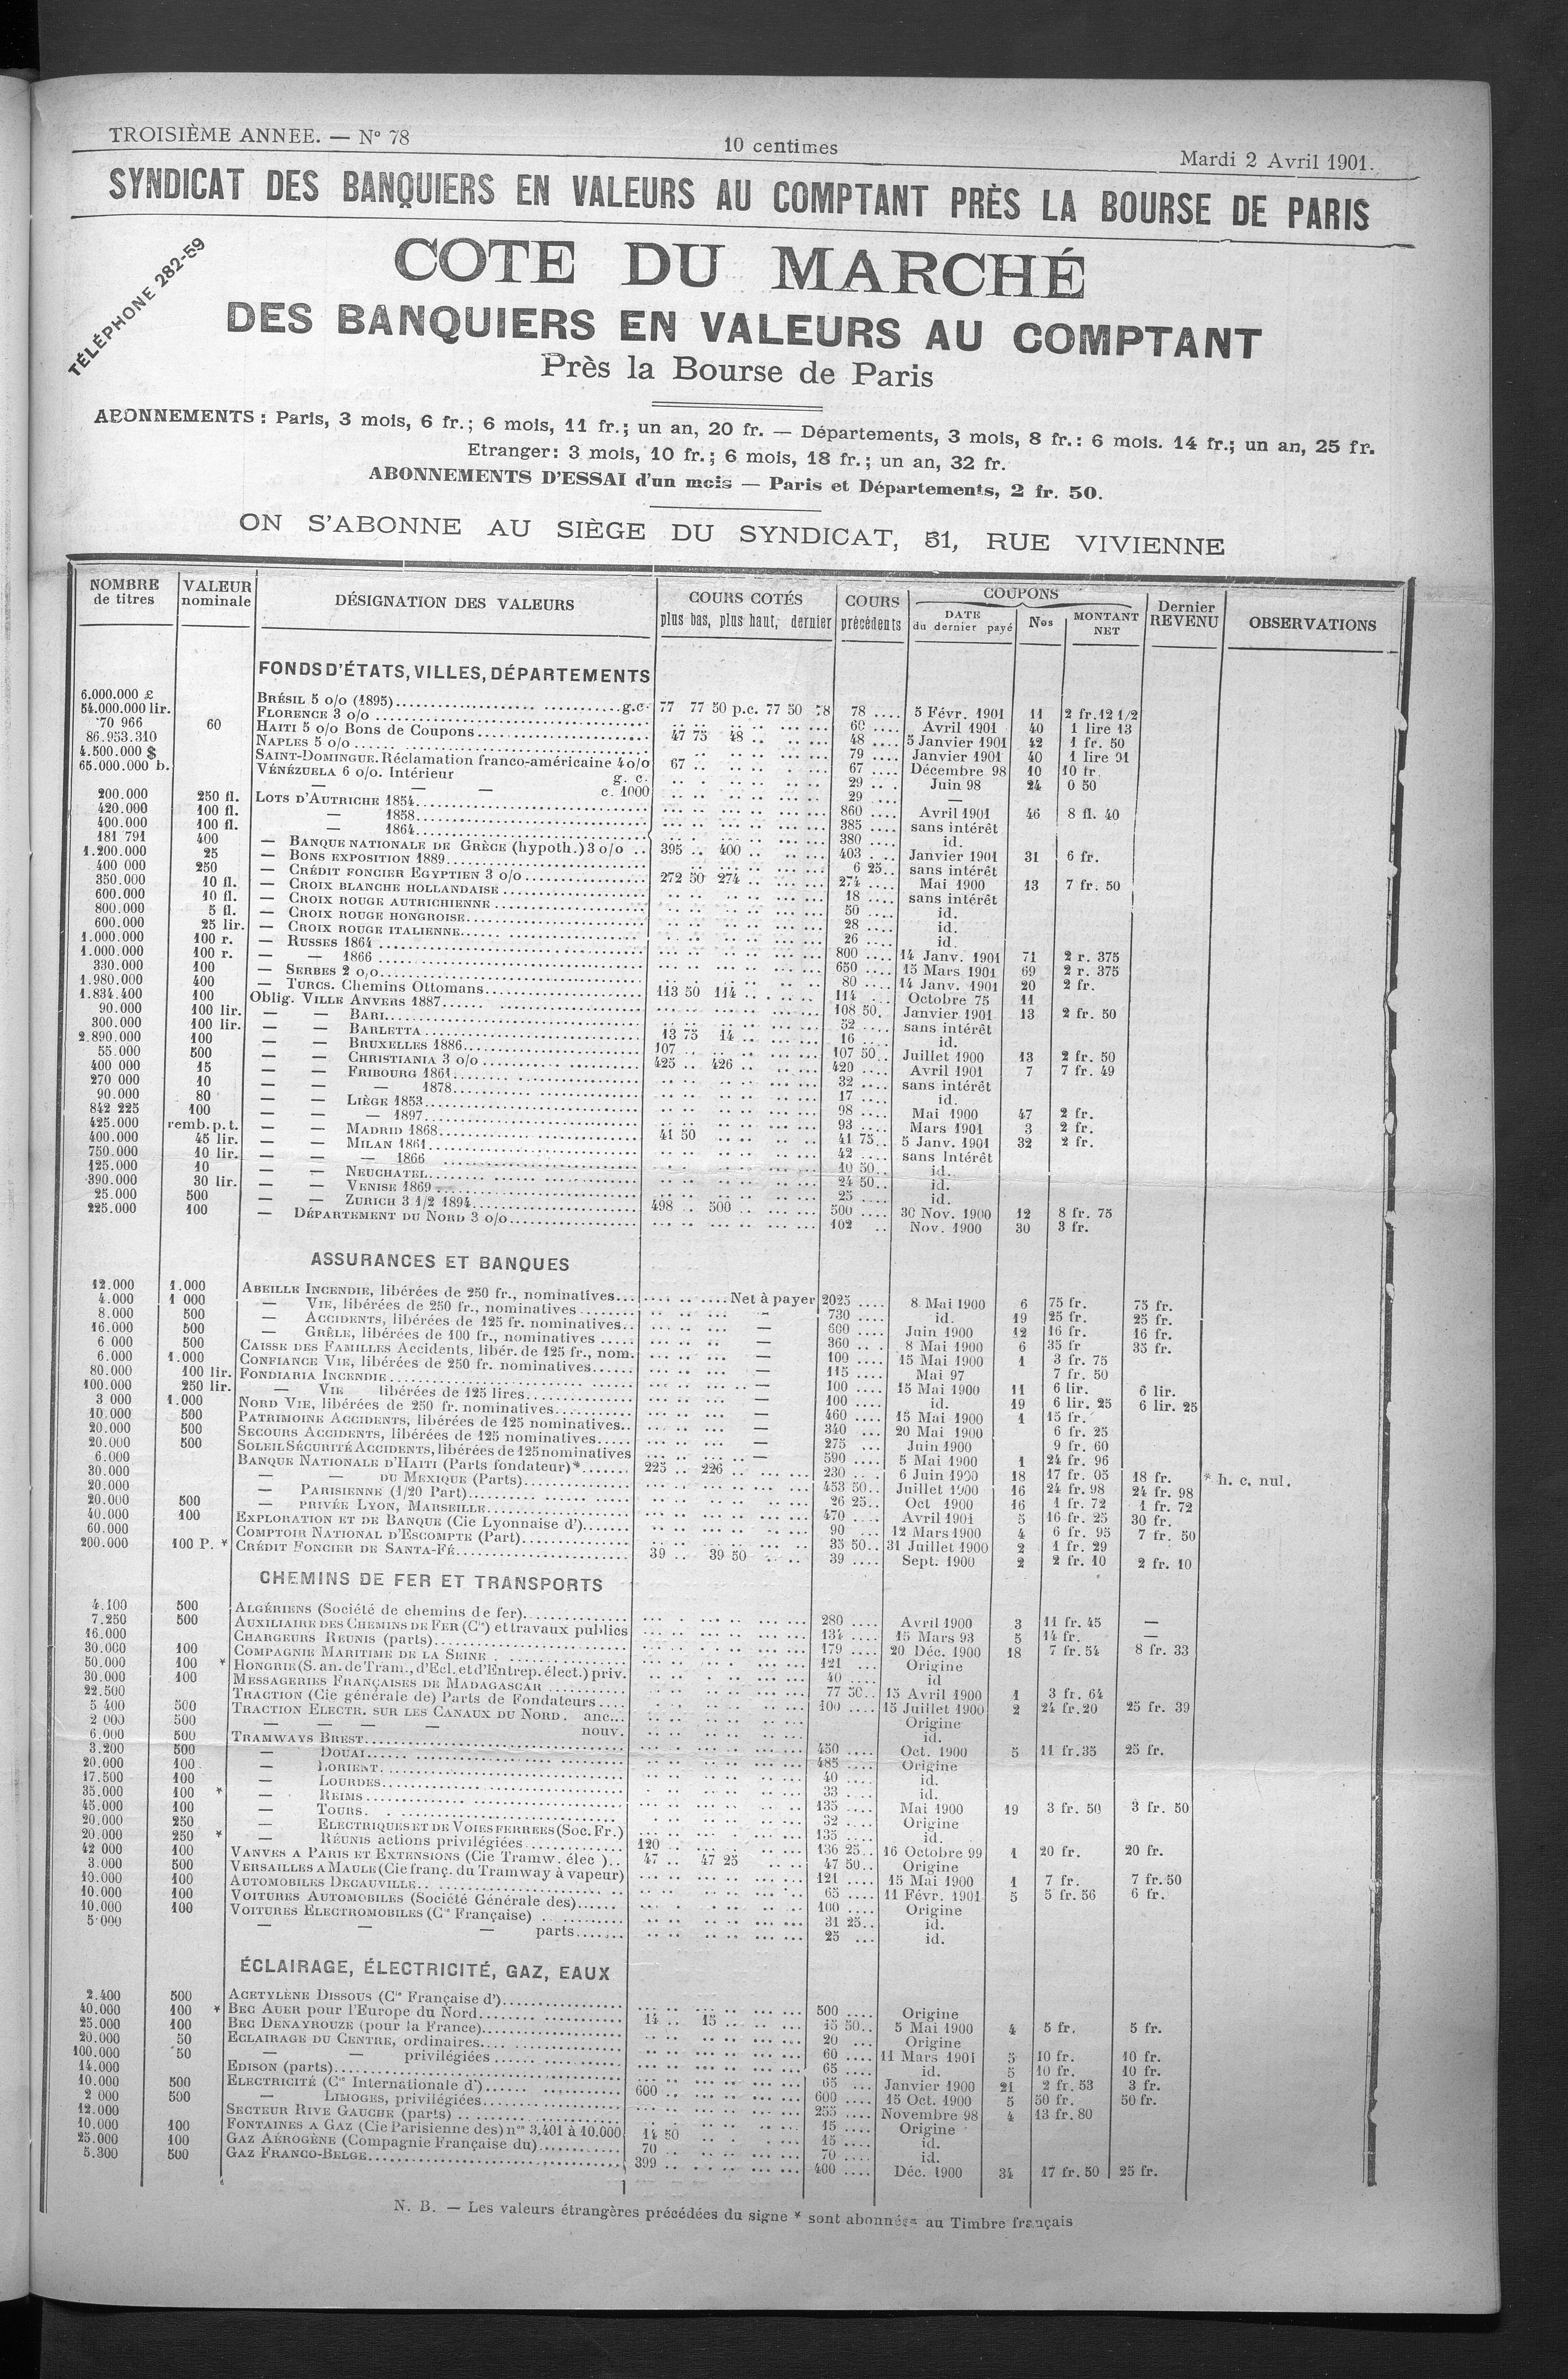 TROISIÈME ANNEE. — N° 78
10 centimes
Mardi 2 Avril 1901.
SYNDICAT DES BANQUIERS EN VALEURS AU COMPTANT PRÈS LA BOURSE DE PARIS
TÉLÉPHONE 282-59
COTE DU MARCHÉ
DES BANQUIERS EN VALEURS AU COMPTANT
Près la Bourse de Paris
ABONNEMENTS : Paris, 3 mois, 6 fr.; 6 mois, 11 fr.; un an, 20 fr. — Départements, 3 mois, 8 fr.: 6 mois. 14 fr.; un an, 25 fr.
Etranger: 3 mois, 10 fr.; 6 mois, 18 fr.; un an, 32 fr.
ABONNEMENTS D'ESSAI d'un mois — Paris et Départements, 2 fr. 50.
ON S'ABONNE AU SIÈGE DU SYNDICAT, 31, RUE VIVIENNE
NOMBRE de titres | VALEUR nominale | DÉSIGNATION DES VALEURS | COURS COTÉS plus bas, plus haut, dernier | COURS précédents | COUPONS DATE du dernier payé | Nos | MONTANT NET | Dernier REVENU | OBSERVATIONS
FONDS D'ÉTATS, VILLES, DÉPARTEMENTS
6.000.000 £ BRÉSIL 5 o/o (1895) g.c. 77 77 50 p.c. 77 50 78 78 5 Févr. 1901 11 2 fr.12 1/2
54.000.000 lir. FLORENCE 3 o/o 60 Avril 1901 40 1 lire 13
70 966 60 HAITI 5 o/o Bons de Coupons 47 75 48 48 5 Janvier 1901 42 1 fr. 50
86.953.310 NAPLES 5 o/o 79 Janvier 1901 40 1 lire 91
4.500.000 $ SAINT-DOMINGUE. Réclamation franco-américaine 4 o/o 67 67 Décembre 98 10 10 fr.
65.000.000 b. VÉNÉZUELA 6 o/o. Intérieur g. c. 29 Juin 98 24 0 50
— — — c. 1000 29 —
200.000 250 fl. LOTS D'AUTRICHE 1854 860 Avril 1901 46 8 fl. 40
420.000 100 fl. — 1858 385 sans intérêt
400.000 100 fl. — 1864 380 id.
181 791 400 — BANQUE NATIONALE DE GRÈCE (hypoth.) 3 o/o 395 400 403 Janvier 1901 31 6 fr.
1.200.000 25 — BONS EXPOSITION 1889 6 25 sans intérêt
400 000 250 — CRÉDIT FONCIER EGYPTIEN 3 o/o 272 50 274 274 Mai 1900 13 7 fr. 50
350.000 10 fl. — CROIX BLANCHE HOLLANDAISE 18 sans intérêt
600.000 10 fl. — CROIX ROUGE AUTRICHIENNE 50 id.
800.000 5 fl. — CROIX ROUGE HONGROISE 28 id.
600.000 25 lir. — CROIX ROUGE ITALIENNE 26 id.
1.000.000 100 r. — RUSSES 1864 800 14 Janv. 1901 71 2 r. 375
1.000.000 100 r. — — 1866 650 15 Mars 1901 69 2 r. 375
330.000 100 — SERBES 2 o/o 80 14 Janv. 1901 20 2 fr.
1.980.000 400 — TURCS. Chemins Ottomans 113 50 114 114 Octobre 75 11
1.834.400 100 Oblig. VILLE ANVERS 1887 108 50 Janvier 1901 13 2 fr. 50
90.000 100 lir. — — BARI 52 sans intérêt
300.000 100 lir. — — BARLETTA 13 75 14 16 id.
2.890.000 100 — — BRUXELLES 1886 107 107 50 Juillet 1900 13 2 fr. 50
55.000 500 — — CHRISTIANIA 3 o/o 425 426 420 Avril 1901 7 7 fr. 49
400 000 15 — — FRIBOURG 1861 32 sans intérêt
270 000 10 — — — 1878 17 id.
90.000 80 — — LIÈGE 1853 98 Mai 1900 47 2 fr.
842 225 100 — — — 1897 93 Mars 1901 3 2 fr.
425.000 remb. p. t. — — MADRID 1868 41 50 41 75 5 Janv. 1901 32 2 fr.
400.000 45 lir. — — MILAN 1861 42 sans Intérêt
750.000 10 lir. — — — 1866 10 50 id.
125.000 10 — — NEUCHATEL 24 50 id.
390.000 30 lir. — — VENISE 1869 25 id.
25.000 500 — — ZURICH 3 1/2 1894 498 500 500 30 Nov. 1900 12 8 fr. 75
225.000 100 — DÉPARTEMENT DU NORD 3 o/o 102 Nov. 1900 30 3 fr.
ASSURANCES ET BANQUES
12.000 1.000 ABEILLE INCENDIE, libérées de 250 fr., nominatives Net à payer 2025 8 Mai 1900 6 75 fr. 75 fr.
4.000 1 000 — VIE, libérées de 250 fr., nominatives — 730 id. 19 25 fr. 25 fr.
8.000 500 — ACCIDENTS, libérées de 125 fr. nominatives — 600 Juin 1900 12 16 fr. 16 fr.
16.000 500 — GRÊLE, libérées de 100 fr., nominatives — 360 8 Mai 1900 6 35 fr 35 fr.
6 000 500 CAISSE DES FAMILLES Accidents, libér. de 125 fr., nom. — 100 15 Mai 1900 1 3 fr. 75
6.000 1.000 CONFIANCE VIE, libérées de 250 fr. nominatives — 115 Mai 97 7 fr. 50
80.000 100 lir. FONDIARIA INCENDIE — 100 15 Mai 1900 11 6 lir. 6 lir.
100.000 250 lir. — VIE libérées de 125 lires — 100 id. 19 6 lir. 25 6 lir. 25
3 000 1.000 NORD VIE, libérées de 250 fr. nominatives — 460 15 Mai 1900 1 15 fr.
10.000 500 PATRIMOINE ACCIDENTS, libérées de 125 nominatives — 340 20 Mai 1900 6 fr. 25
20.000 500 SECOURS ACCIDENTS, libérées de 125 nominatives — 275 Juin 1900 9 fr. 60
20.000 500 SOLEIL SÉCURITÉ ACCIDENTS, libérées de 125 nominatives — 590 5 Mai 1900 1 24 fr. 96
6.000 BANQUE NATIONALE D'HAITI (Parts fondateur)* 225 226 230 6 Juin 1900 18 17 fr. 05 18 fr. * h. c. nul.
30.000 — — DU MEXIQUE (Parts) 453 50 Juillet 1900 16 24 fr. 98 24 fr. 98
20.000 — PARISIENNE (1/20 Part) 26 25 Oct 1900 16 1 fr. 72 1 fr. 72
20.000 500 — PRIVÉE LYON, MARSEILLE 470 Avril 1901 5 16 fr. 25 30 fr.
40.000 100 EXPLORATION ET DE BANQUE (Cie Lyonnaise d') 90 12 Mars 1900 4 6 fr. 95 7 fr. 50
60.000 COMPTOIR NATIONAL D'ESCOMPTE (Part) 35 50 31 Juillet 1900 2 1 fr. 29
200.000 100 P. * CRÉDIT FONCIER DE SANTA-FÉ 39 39 50 39 Sept. 1900 2 2 fr. 10 2 fr. 10
CHEMINS DE FER ET TRANSPORTS
4.100 500 ALGÉRIENS (Société de chemins de fer) 280 Avril 1900 3 11 fr. 45 —
7.250 500 AUXILIAIRE DES CHEMINS DE FER (Cie) et travaux publics 134 15 Mars 93 5 14 fr. —
16.000 CHARGEURS REUNIS (parts) 179 20 Déc. 1900 18 7 fr. 54 8 fr. 33
30.000 100 COMPAGNIE MARITIME DE LA SEINE 121 Origine
50.000 100 * HONGRIE (S. an. de Tram., d'Ecl. et d'Entrep. élect.) priv. 40 id
30.000 100 MESSAGERIES FRANÇAISES DE MADAGASCAR 77 50 15 Avril 1900 1 3 fr. 64
22.500 TRACTION (Cie générale de) Parts de Fondateurs 100 15 Juillet 1900 2 24 fr. 20 25 fr. 39
5 400 500 TRACTION ELECTR. SUR LES CANAUX DU NORD. anc. Origine
2 000 500 — — — — nouv. id.
6.000 500 TRAMWAYS BREST 450 Oct. 1900 5 11 fr.35 25 fr.
3.200 500 — DOUAI 485 Origine
20.000 100 — LORIENT 40 id.
17.500 100 — LOURDES 33 id.
35.000 100 * — REIMS 135 Mai 1900 19 3 fr. 50 3 fr. 50
45.000 100 — TOURS 32 Origine
20.000 250 — ELECTRIQUES ET DE VOIES FERREES (Soc. Fr.) 135 id.
20.000 250 * — RÉUNIS actions privilégiées 120 136 25 16 Octobre 99 1 20 fr. 20 fr.
42 000 100 VANVES A PARIS ET EXTENSIONS (Cie Tramw. élec ) 47 47 25 47 50 Origine
3.000 500 VERSAILLES A MAULE (Cie franç. du Tramway à vapeur) 121 15 Mai 1900 1 7 fr. 7 fr. 50
10.000 100 AUTOMOBILES DECAUVILLE 65 11 Févr. 1901 5 5 fr. 56 6 fr.
10.000 100 VOITURES AUTOMOBILES (Société Générale des) 100 Origine
10.000 100 VOITURES ELECTROMOBILES (Cie Française) 31 25 id.
5.000 — — — parts 25 id.
ÉCLAIRAGE, ÉLECTRICITÉ, GAZ, EAUX
2.400 500 ACETYLÈNE DISSOUS (Cie Française d') 500 Origine
40.000 100 * BEC AUER pour l'Europe du Nord 14 15 15 50 5 Mai 1900 4 5 fr. 5 fr.
25.000 100 BEC DENAYROUZE (pour la France) 20 Origine
20.000 50 ECLAIRAGE DU CENTRE, ordinaires 60 11 Mars 1901 5 10 fr. 10 fr.
100.000 50 — — privilégiées 65 id. 5 10 fr. 10 fr.
14.000 EDISON (parts) 65 Janvier 1900 21 2 fr. 53 3 fr.
10.000 500 ELECTRICITÉ (Cie Internationale d') 600 600 15 Oct. 1900 5 50 fr. 50 fr.
2 000 500 — LIMOGES, privilégiées 255 Novembre 98 4 13 fr. 80
12.000 SECTEUR RIVE GAUCHE (parts) 15 Origine
10.000 100 FONTAINES A GAZ (Cie Parisienne des) nos 3.401 à 10.000 14 50 15 id.
25.000 100 GAZ AÉROGÈNE (Compagnie Française du) 70 70 id.
5.300 500 GAZ FRANCO-BELGE 399 400 Déc. 1900 34 17 fr. 50 25 fr.
N. B. — Les valeurs étrangères précédées du signe * sont abonnées au Timbre français